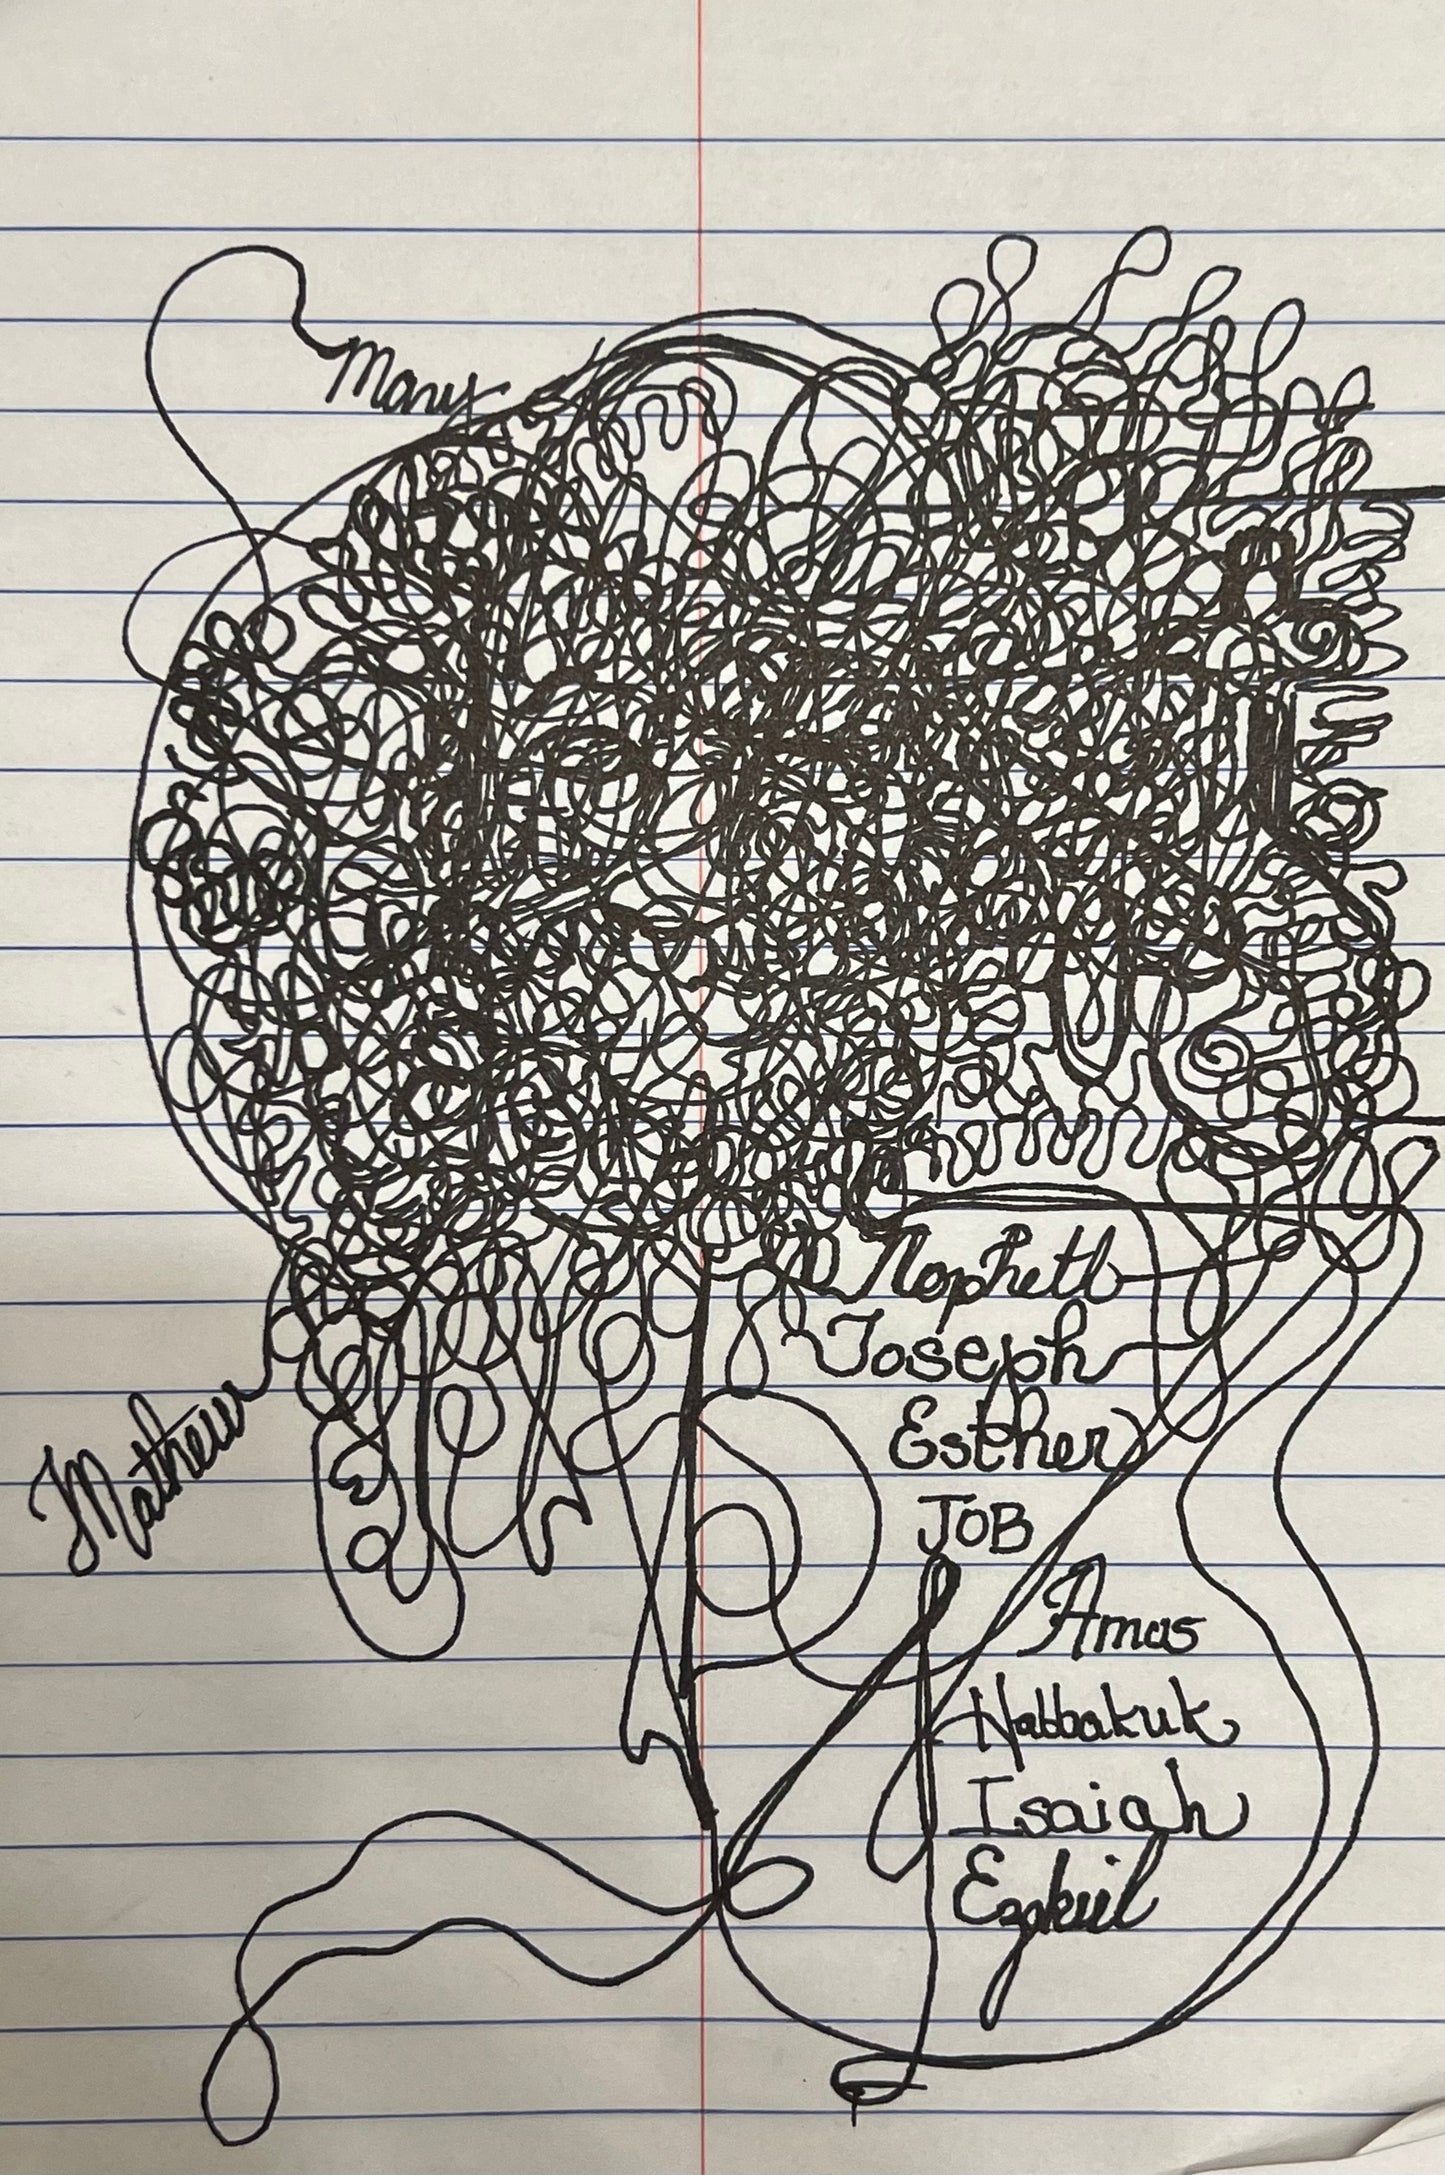 Mary
Mathew
Nopheth
Joseph
Esther
JOB
Amas
Habbakuk
Isaiah
Ezekiil